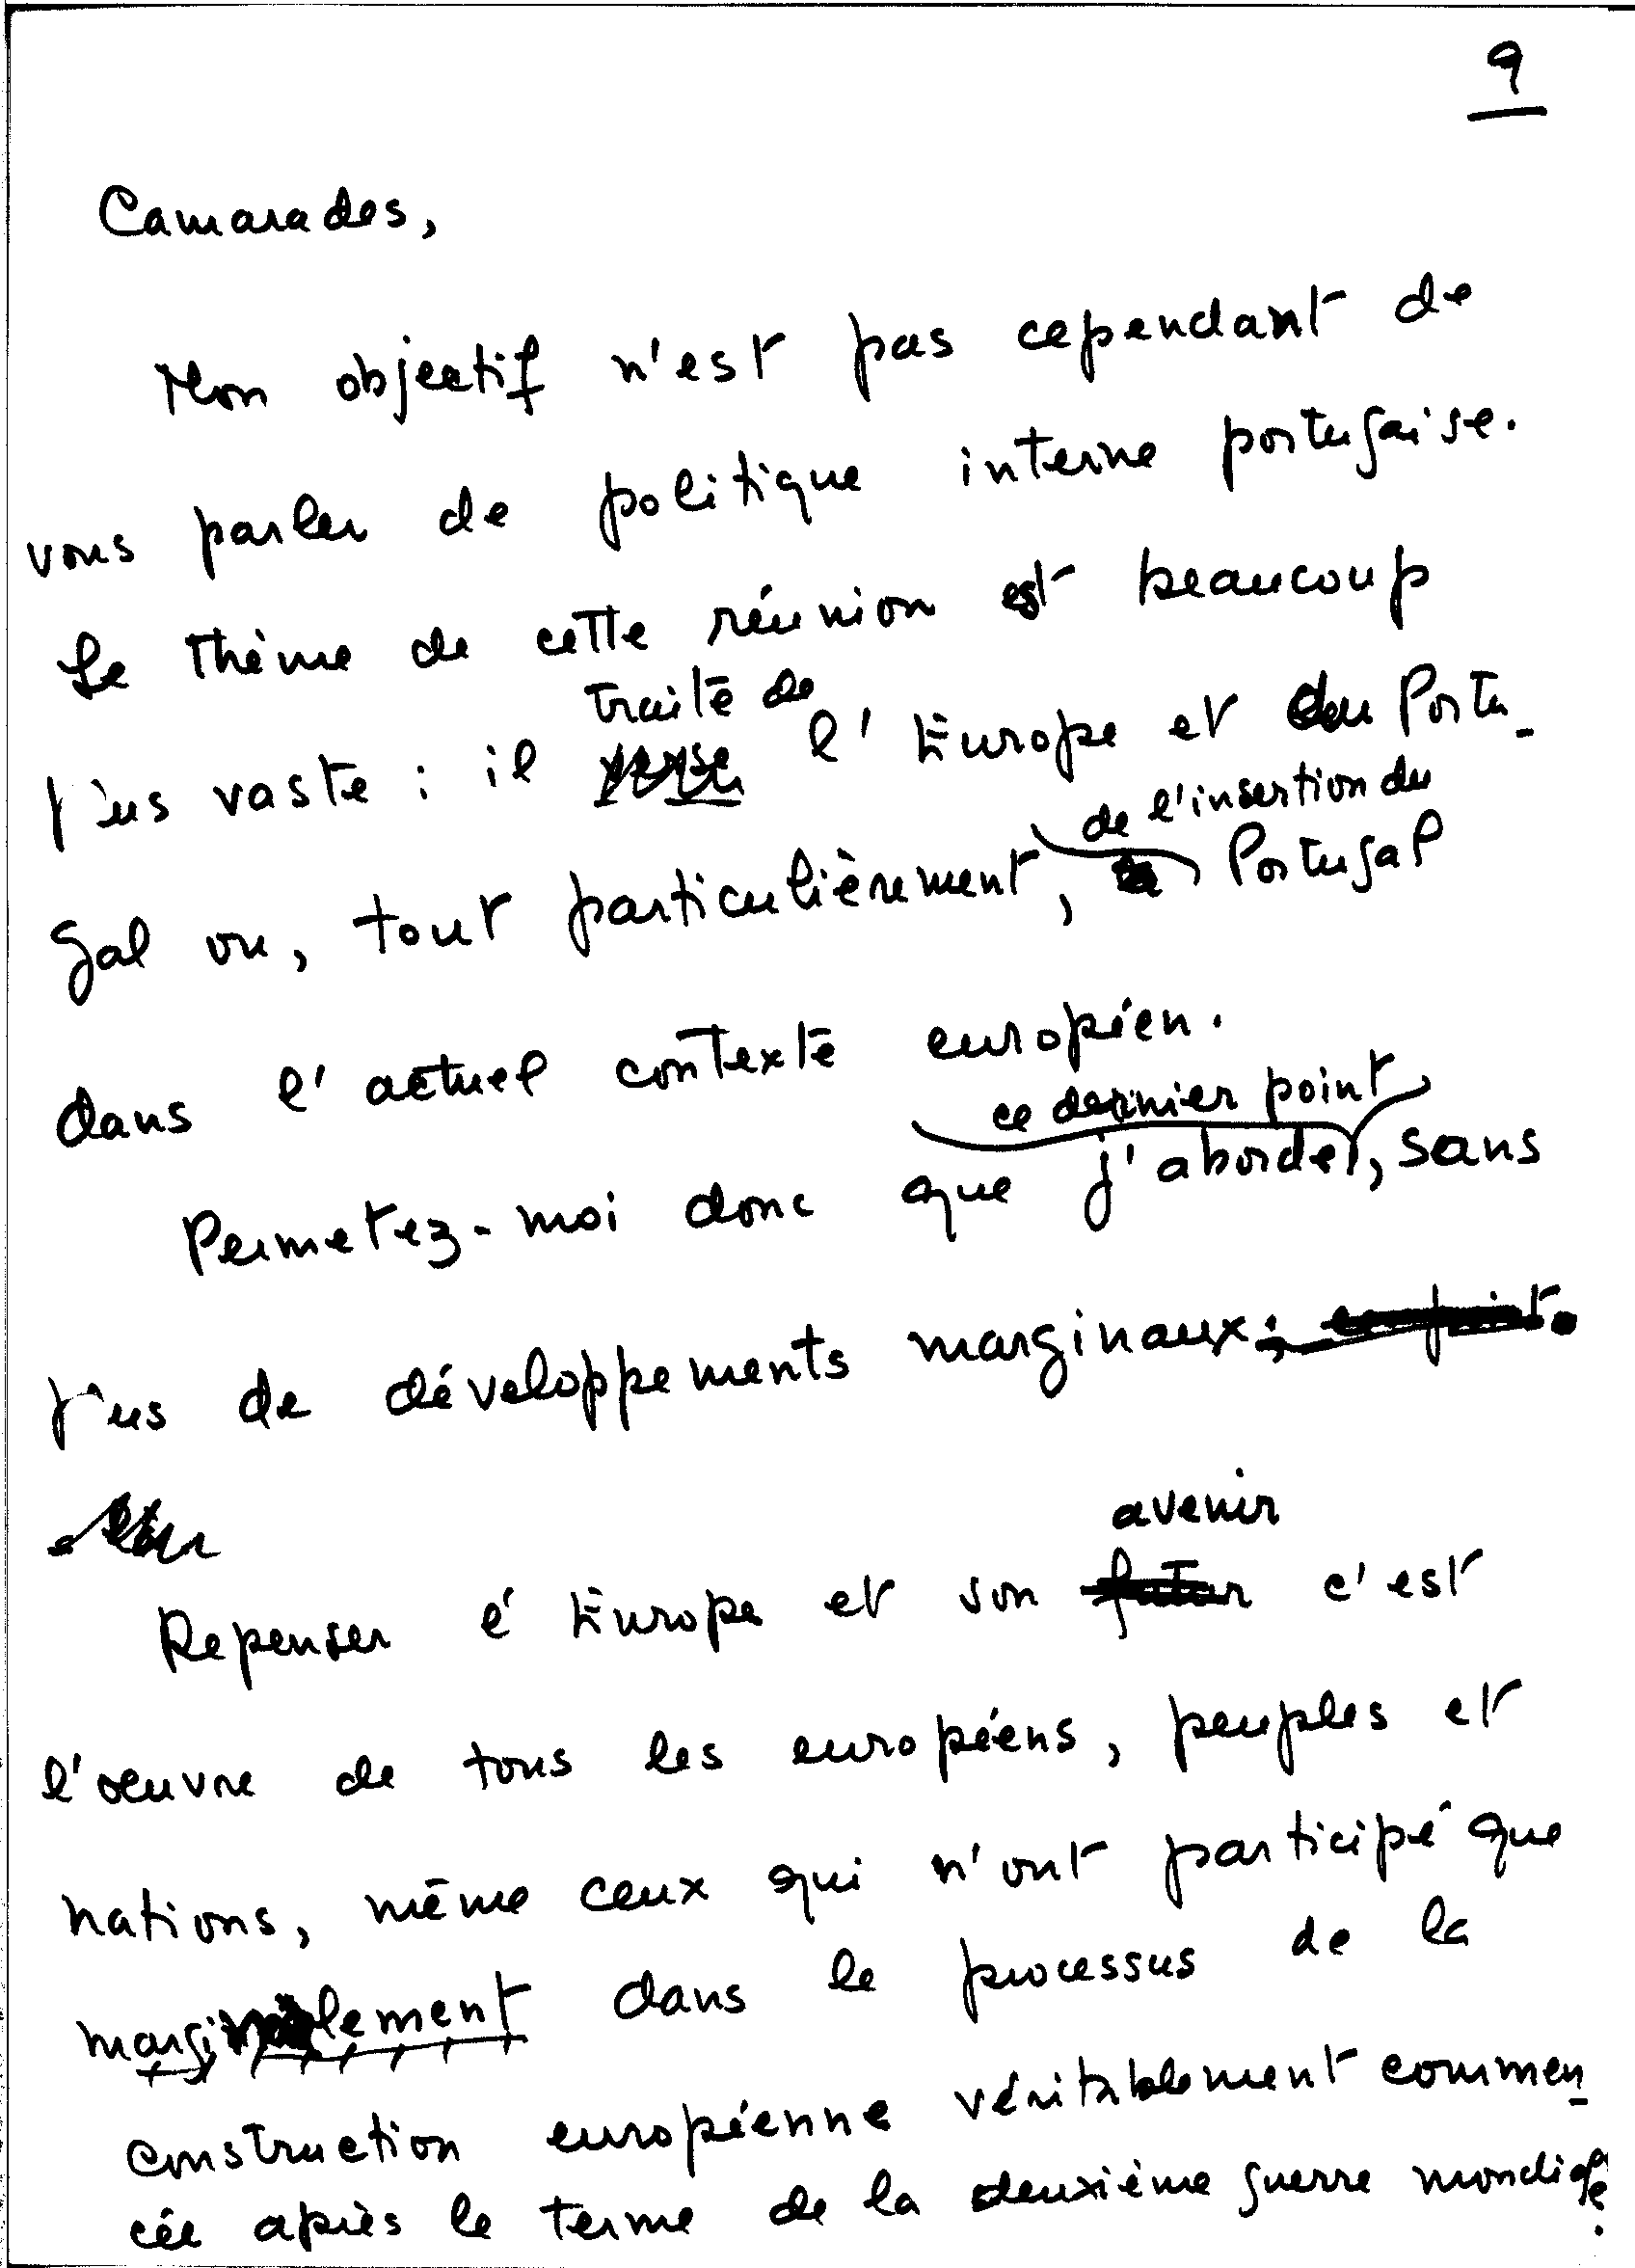 9
Camarades,
Mon objectif n'est pas cependant de
vous parler de politique interne portugaise.
Le thème de cette réunion est beaucoup
traite de
plus vaste : il verse l'Europe et du Portu-
de l'insertion du
gal ou, tout particulièrement, Portugal
dans l'actuel contexte européen.
ce dernier point
Permetez-moi donc que j'aborde, sans
plus de développements marginaux;
avenir
Repenser l'Europe et son futur c'est
l'oeuvre de tous les européens, peuples et
nations, même ceux qui n'ont participé que
marginalement dans le processus de la
construction européenne véritablement commen-
cée après le terme de la deuxième guerre mondiale.